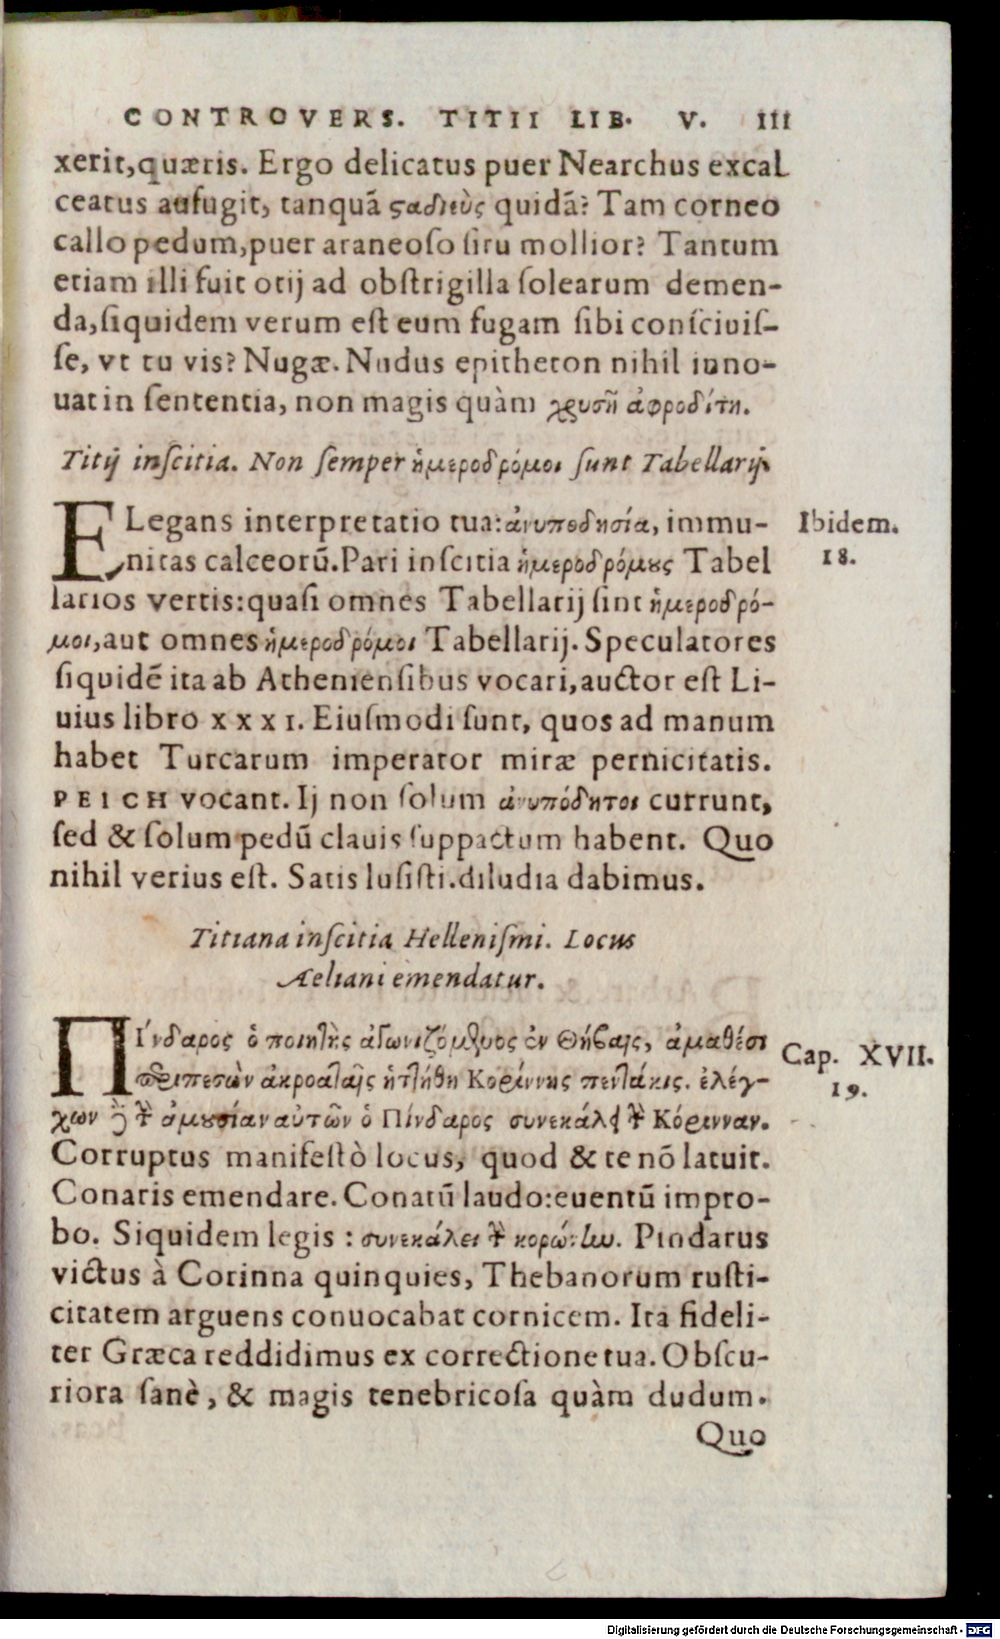 CONTROVERS. TITII LIB. V. 111
xerit, quæris. Ergo delicatus puer Nearchus excal
ceatus aufugit, tanquã ϛαδιεὺς quidã? Tam corneo
callo pedum, puer araneoſo ſitu mollior? Tantum
etiam illi fuit otij ad obſtrigilla ſolearum demen-
da, ſiquidem verum eſt eum fugam ſibi conſciuiſ-
ſe, vt tu vis? Nugæ. Nudus epitheton nihil inno-
uat in ſententia, non magis quàm χρυσῆ ἀφροδίτη.
Titij inſcitia. Non ſemper ἡμεροδρόμοι ſunt Tabellarij.
ELegans interpretatio tua: ἀνυποδησία, immu-
nitas calceorũ. Pari inſcitia ἡμεροδρόμους Tabel
larios vertis: quaſi omnes Tabellarij ſint ἡμεροδρό-
μοι, aut omnes ἡμεροδρόμοι Tabellarij. Speculatores
ſiquidẽ ita ab Athenienſibus vocari, auctor eſt Li-
uius libro XXXI. Eiuſmodi ſunt, quos ad manum
habet Turcarum imperator miræ pernicitatis.
PEICH vocant. Ij non ſolum ἀνυπόδητοι currunt,
ſed & ſolum pedũ clauis ſuppactum habent. Quo
nihil verius eſt. Satis luſiſti. diludia dabimus.
Ibidem.
18.
Titiana inſcitia Helleniſmi. Locus
Æliani emendatur.
Πίνδαρος ὁ ποιητὴς ἀγωνιζόμενος ἐν Θήβαις, ἀμαθέσι
περιπεσὼν ἀκροαταῖς ἡττήθη Κορίννης πεντάκις. ἐλέγ-
χων δὲ τὴν ἀμουσίαν αὐτῶν ὁ Πίνδαρος συνεκάλει τὴν Κόρινναν.
Corruptus manifeſtò locus, quod & te nõ latuit.
Conaris emendare. Conatũ laudo: euentũ impro-
bo. Siquidem legis: συνεκάλει τὴν κορώνην. Pindarus
victus à Corinna quinquies, Thebanorum ruſti-
citatem arguens conuocabat cornicem. Ita fideli-
ter Græca reddidimus ex correctione tua. Obſcu-
riora ſanè, & magis tenebricoſa quàm dudum.
Quo
Cap. XVII.
19.
Digitalisierung gefördert durch die Deutsche Forschungsgemeinschaft - DFG